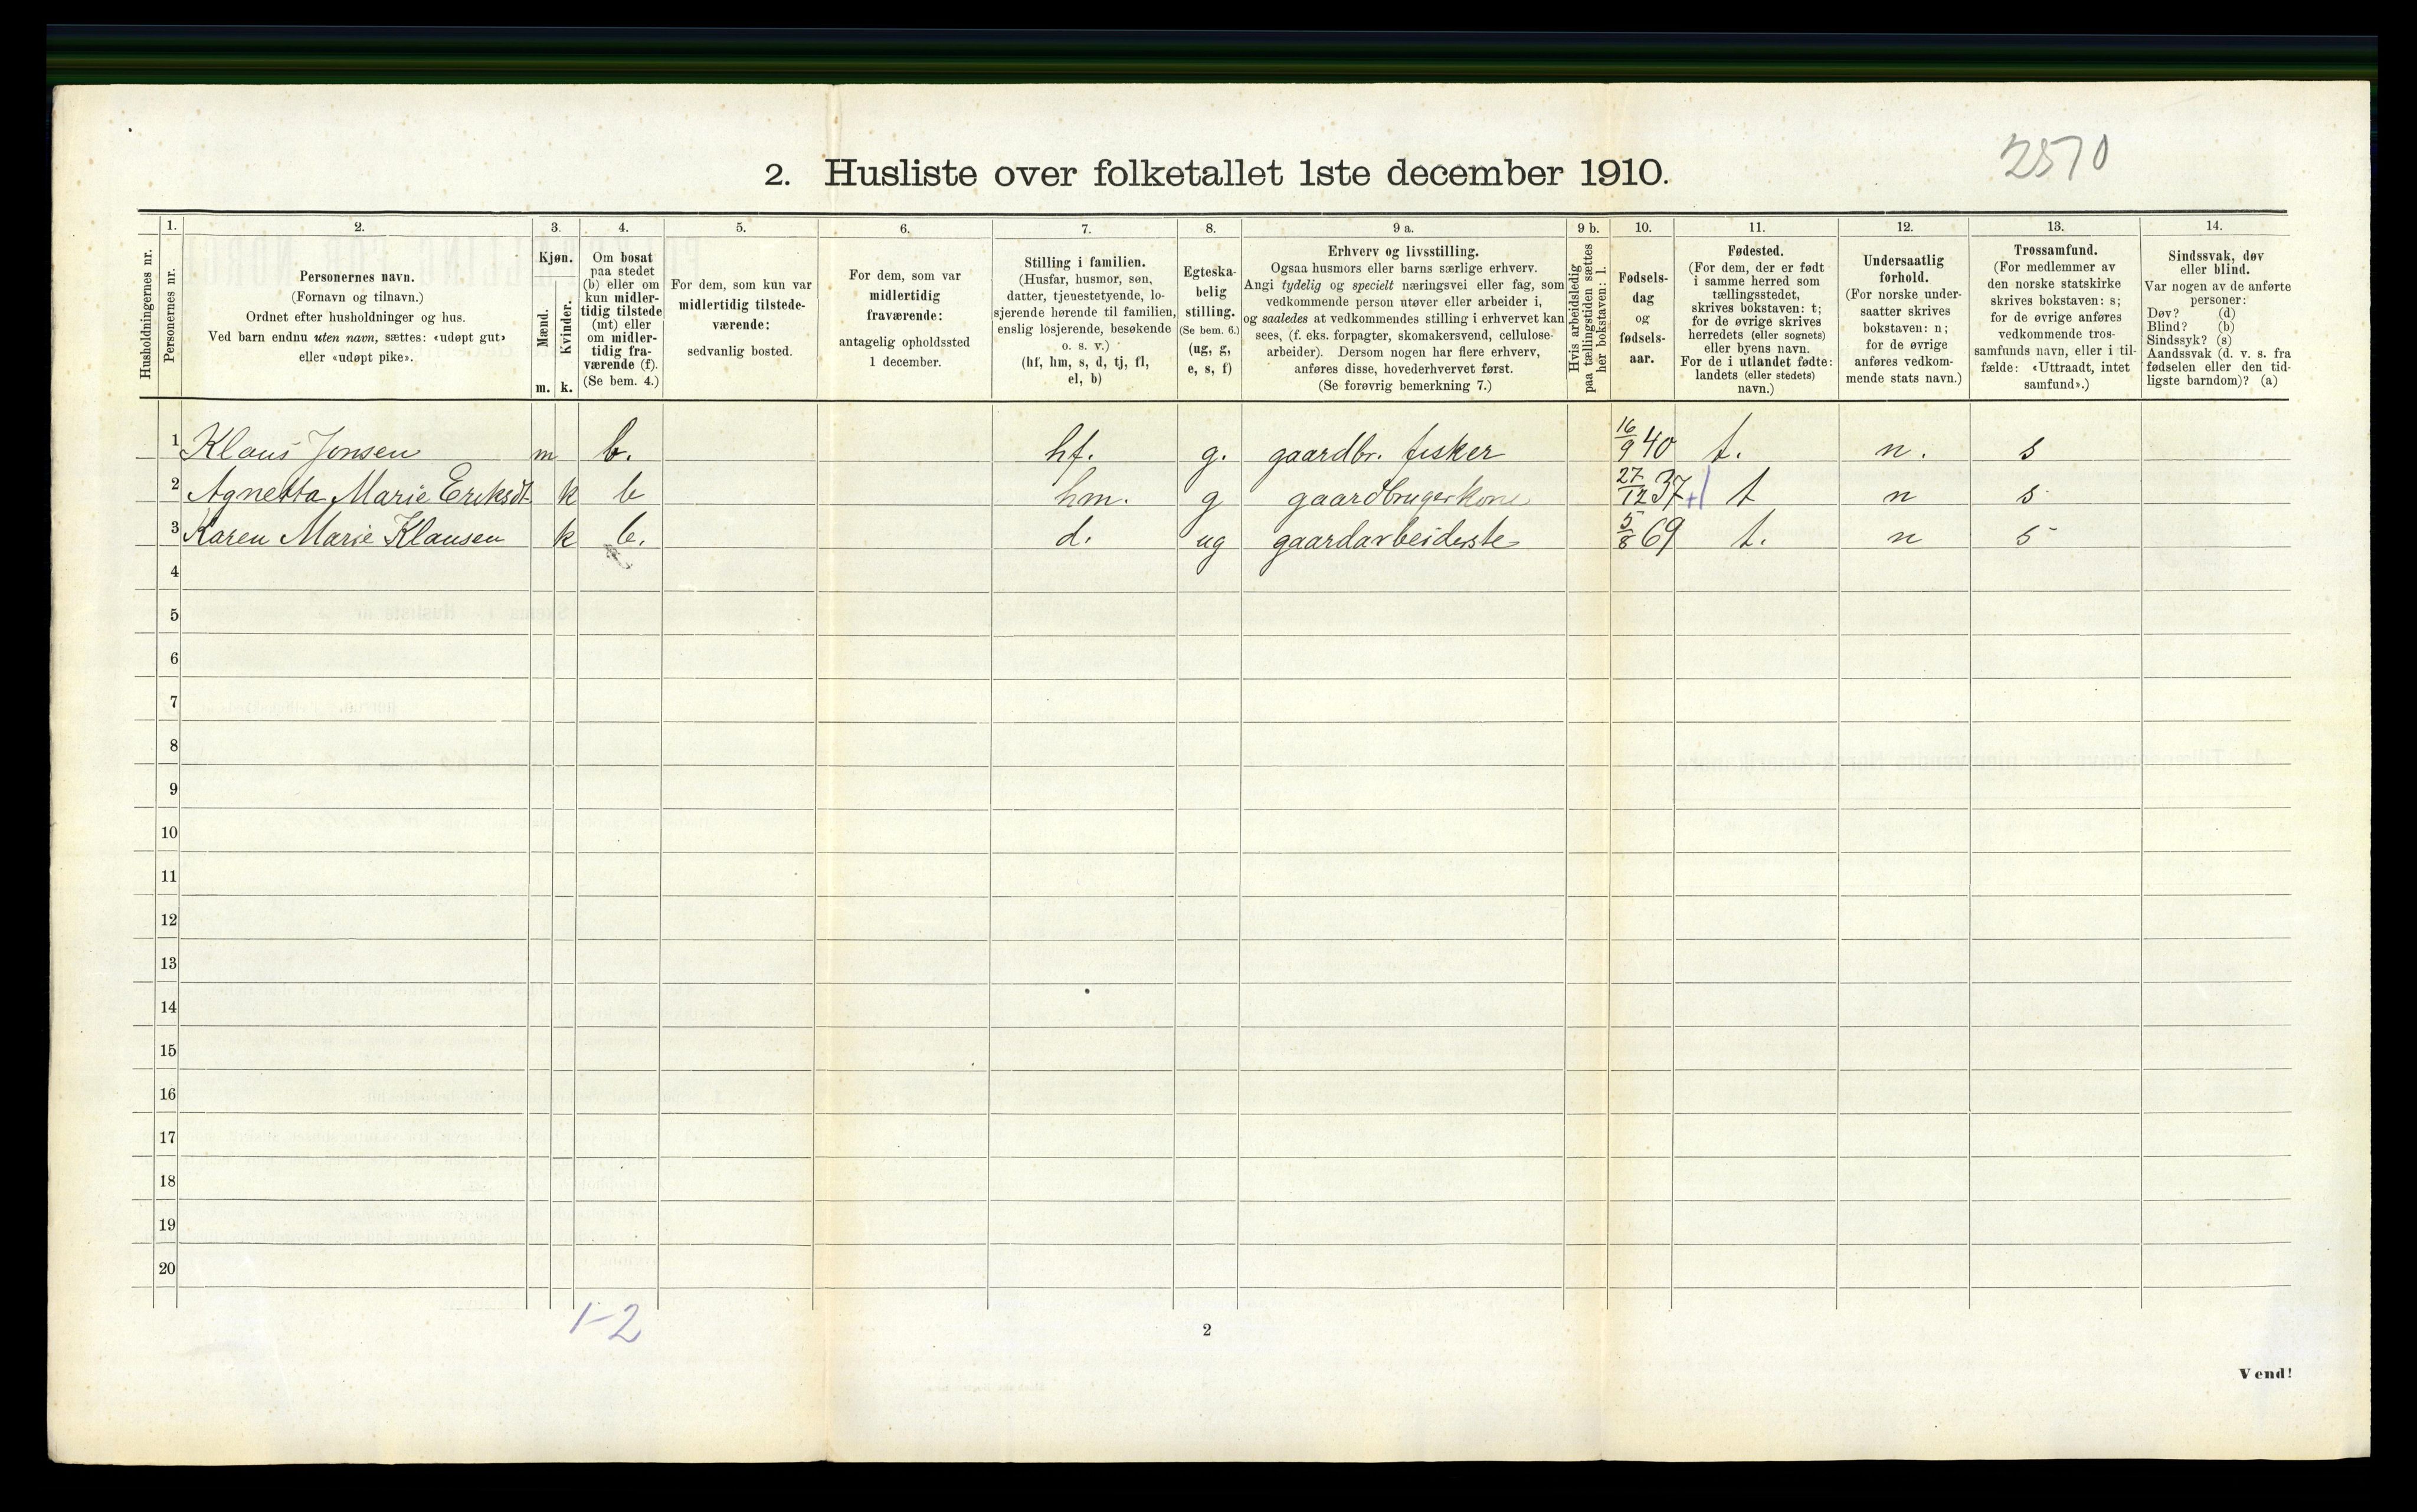 2570
2. Husliste over folketallet 1ste december 1910.
Husholdningernes nr.
1. Personernes nr.
2. Personernes navn. (Fornavn og tilnavn.) Ordnet efter husholdninger og hus. Ved barn endnu uten navn, sættes: «udøpt gut» eller «udøpt pike».
3. Kjøn. Mænd. m. Kvinder. k.
4. Om bosat paa stedet (b) eller om kun midlertidig tilstede (mt) eller om midlertidig fraværende (f). (Se bem. 4.)
5. For dem, som kun var midlertidig tilstedeværende: sedvanlig bosted.
6. For dem, som var midlertidig fraværende: antagelig opholdssted 1 december.
7. Stilling i familien. (Husfar, husmor, søn, datter, tjenestetyende, losjerende hørende til familien, enslig losjerende, besøkende o. s. v.) (hf, hm, s, d, tj, fl, el, b)
8. Egteskabelig stilling. (Se bem. 6.) (ug, g, e, s, f)
9 a. Erhverv og livsstilling. Ogsaa husmors eller barns særlige erhverv. Angi tydelig og specielt næringsvei eller fag, som vedkommende person utøver eller arbeider i, og saaledes at vedkommendes stilling i erhvervet kan sees, (f. eks. forpagter, skomakersvend, cellulosearbeider). Dersom nogen har flere erhverv, anføres disse, hovederhvervet først. (Se forøvrig bemerkning 7.)
9 b. Hvis arbeidsledig paa tællingstiden sættes her bokstaven: l.
10. Fødselsdag og fødselsaar.
11. Fødested. (For dem, der er født i samme herred som tællingsstedet, skrives bokstaven: t; for de øvrige skrives herredets (eller sognets) eller byens navn. For de i utlandet fødte: landets (eller stedets) navn.)
12. Undersaatlig forhold. (For norske undersaatter skrives bokstaven: n; for de øvrige anføres vedkommende stats navn.)
13. Trossamfund. (For medlemmer av den norske statskirke skrives bokstaven: s; for de øvrige anføres vedkommende trossamfunds navn, eller i tilfælde: «Uttraadt, intet samfund».)
14. Sindssvak, døv eller blind. Var nogen av de anførte personer: Døv? (d) Blind? (b) Sindssyk? (s) Aandssvak (d. v. s. fra fødselen eller den tidligste barndom)? (a)
1 Klaus Jonsen m b. hf. g. gaardbr. fisker 16/9 40 t. n. s
2 Agnetta Marie Eriksdt. k b hm. g gaardbrugerkone 27/12 37 +1 t n s
3 Karen Marie Klausen k b. d. ug gaardarbeiderste 5/8 69 t. n s
4
5
6
7
8
9
10
11
12
13
14
15
16
17
18
19
20
1-2
2
Vend!